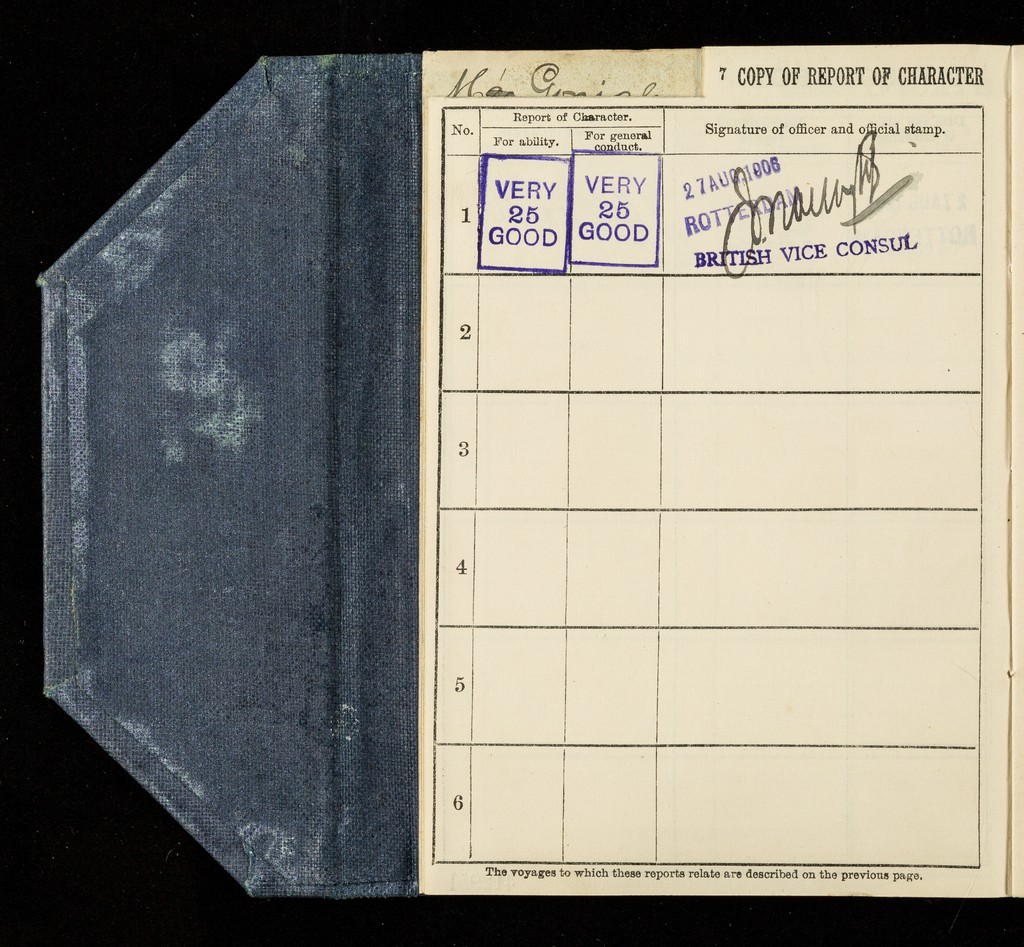 7 COPY OF REPORT OF CHARACTER
No.
Report of Character.
For ability.
For general
conduct.
Signature of officer and official stamp.
1
VERY
25
GOOD
VERY
25
GOOD
27 AUG 1906
ROTTERDAM
BRITISH VICE CONSUL
2
3
4
5
6
The voyages to which these reports relate are described on the previous page.